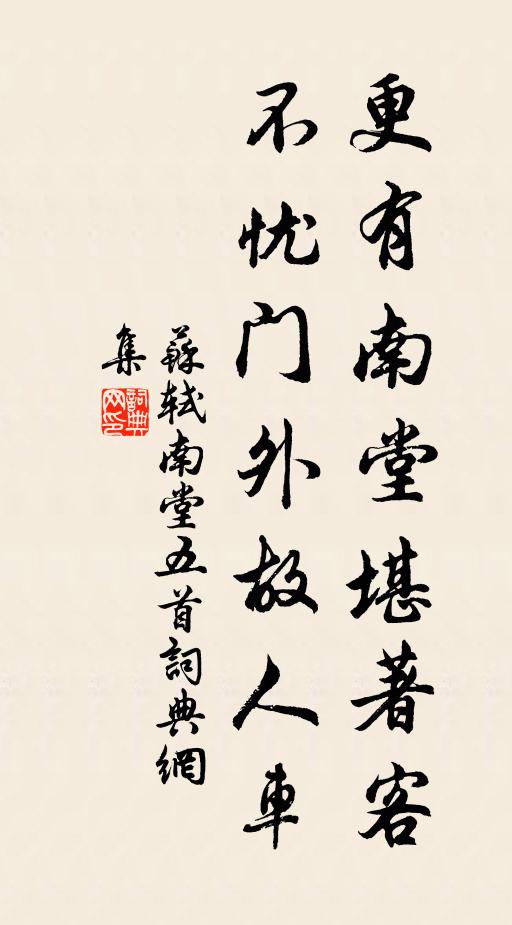 更有南堂堪著客
不忧门外故人車
蘇轼南堂五首詞典網
集
詞典
网印